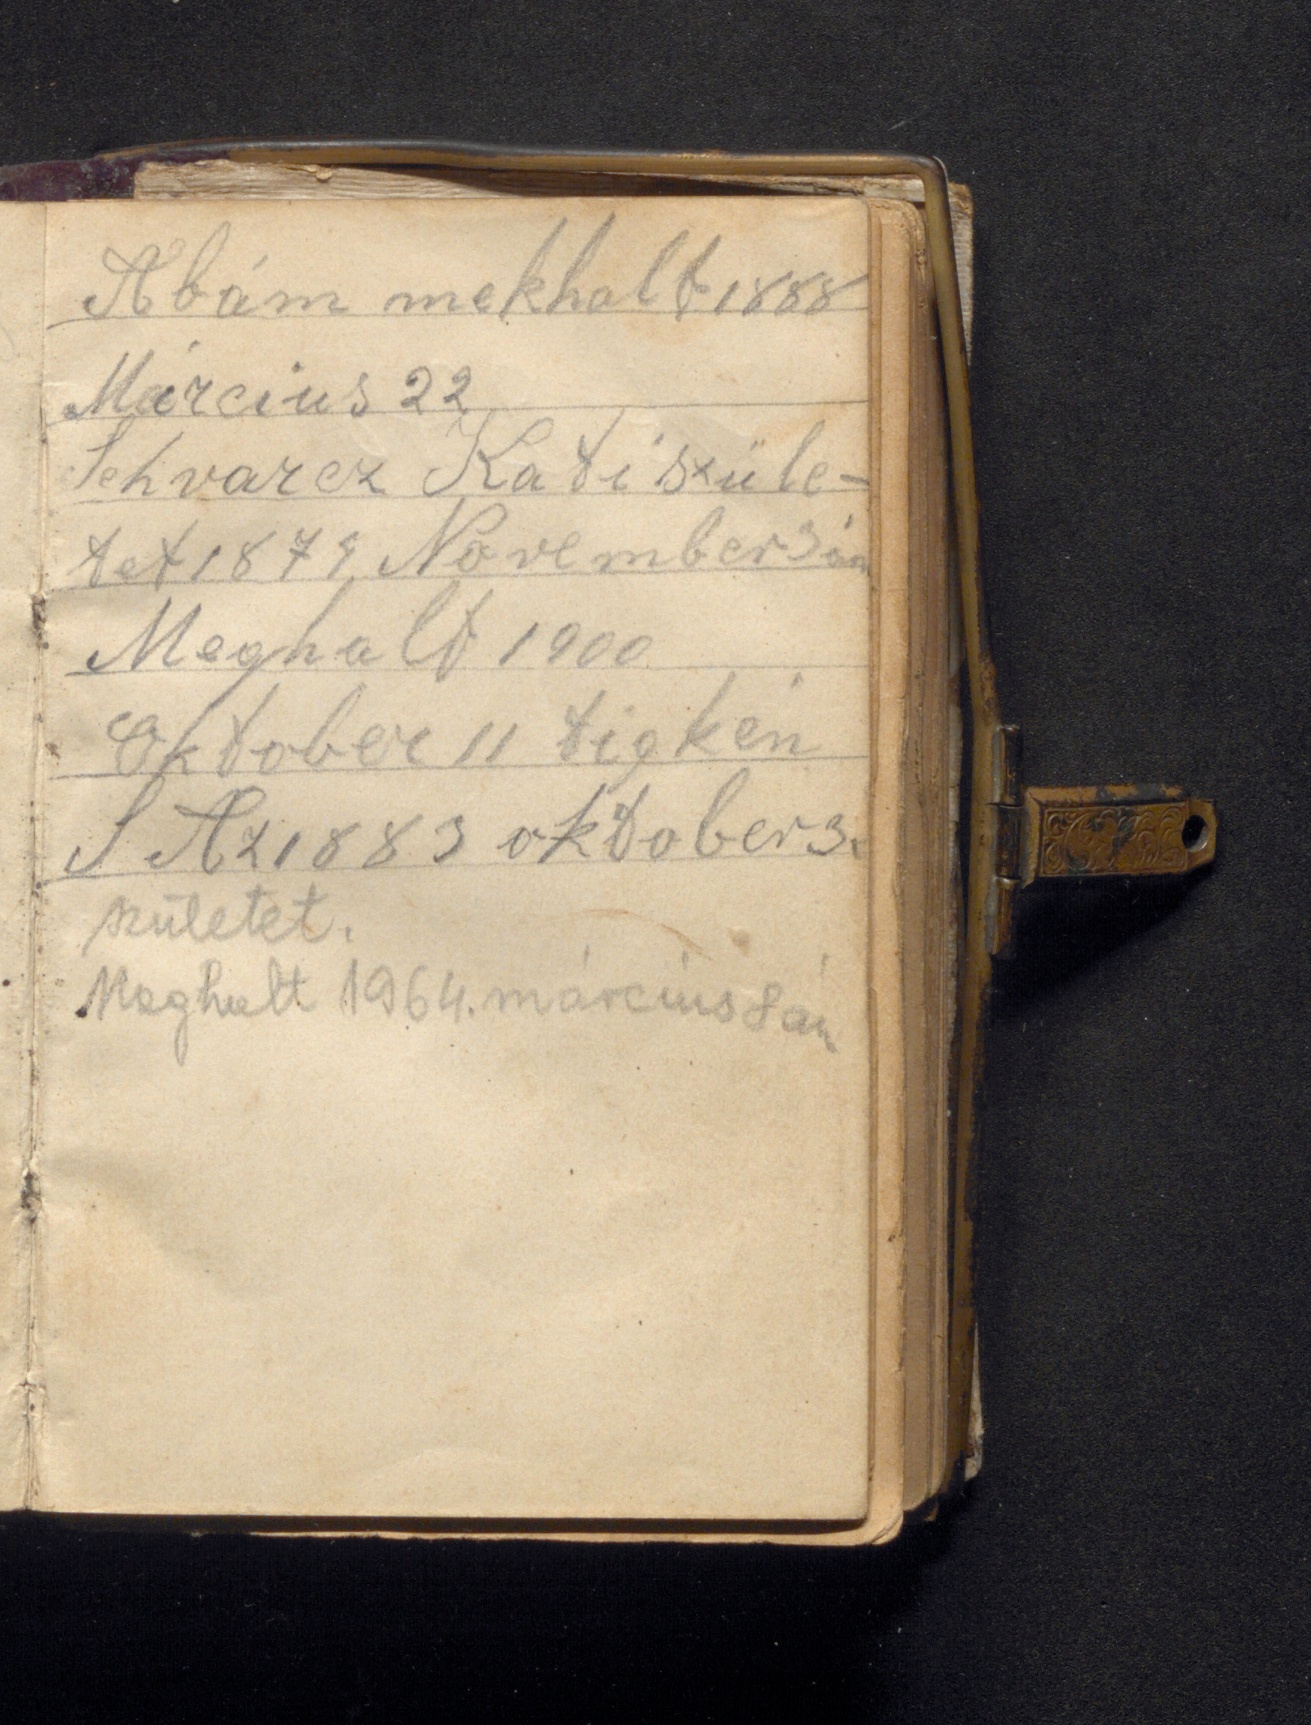 Abám mekhalt 1888
Március 22
Schvarcz Kati szüle-
tet 1879 November 3án
Meghalt 1900
Október 11 tigkén
S A 21883 október 3.
születet.
Meghalt 1964. március 8án